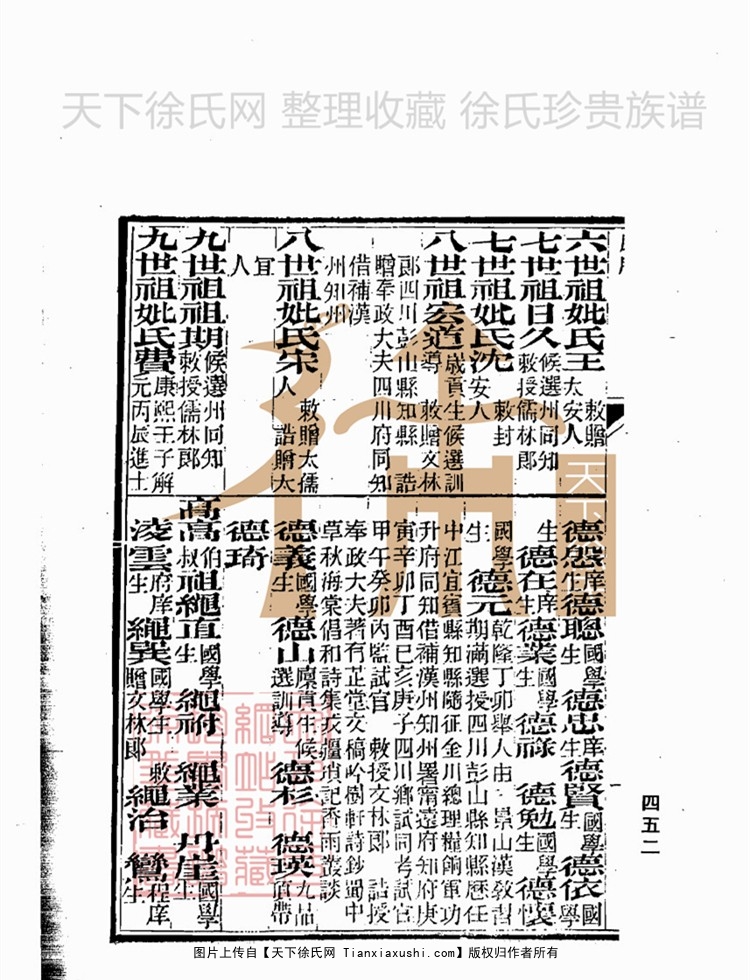 天下徐氏网 整理收藏 徐氏珍贵族谱
六世祖妣氏王 敕贈太安人
七世祖日久 候選州同知敕授儒林郎
七世祖妣氏沈 敕封安人
八世祖宏道 歲貢生候選訓導 敕贈文林
郎四川彭山縣知縣 誥
贈奉政大夫四川府同知
借補漢
州知州
八世祖妣氏宋 敕贈太儒人 誥贈太
宜
人
九世祖祖期 候選州同知敕授儒林郎
九世祖妣氏費 康熙壬子解元丙辰進士
德慇庠生 德聰國學生 德忠庠生 德賢國學生 德依國學
生 德在庠生 德業國學生 德祿 德勉國學生 德懷
國學生 德元 乾隆丁卯舉人由 景山漢教習期滿選授四川彭山縣知縣歷任
中江宜賓縣知縣隨征金川總理糧餉軍功
升府同知借補漢州知州署甯遠府知府庚
寅辛卯丁酉己亥庚子四川鄉試同考試官
甲午癸卯內監試官 敕授文林郎 誥授
奉政大夫著有芷堂文稿吟樹軒詩鈔蜀中
草秋海棠倡和詩集氏瑣記香雨叢談
德義國學生 德山廩貢生候選訓導 德杉 德瑛九品頂帶
德琦
高高伯叔祖繩直國學生 繩祔 繩業 丹崖國學生
淩雲府庠生 繩巽國學生 敕贈文林郎 繩治 鸞程庠生
四五二
天下
图片上传自【天下徐氏网 Tianxiaxushi.com】版权归作者所有